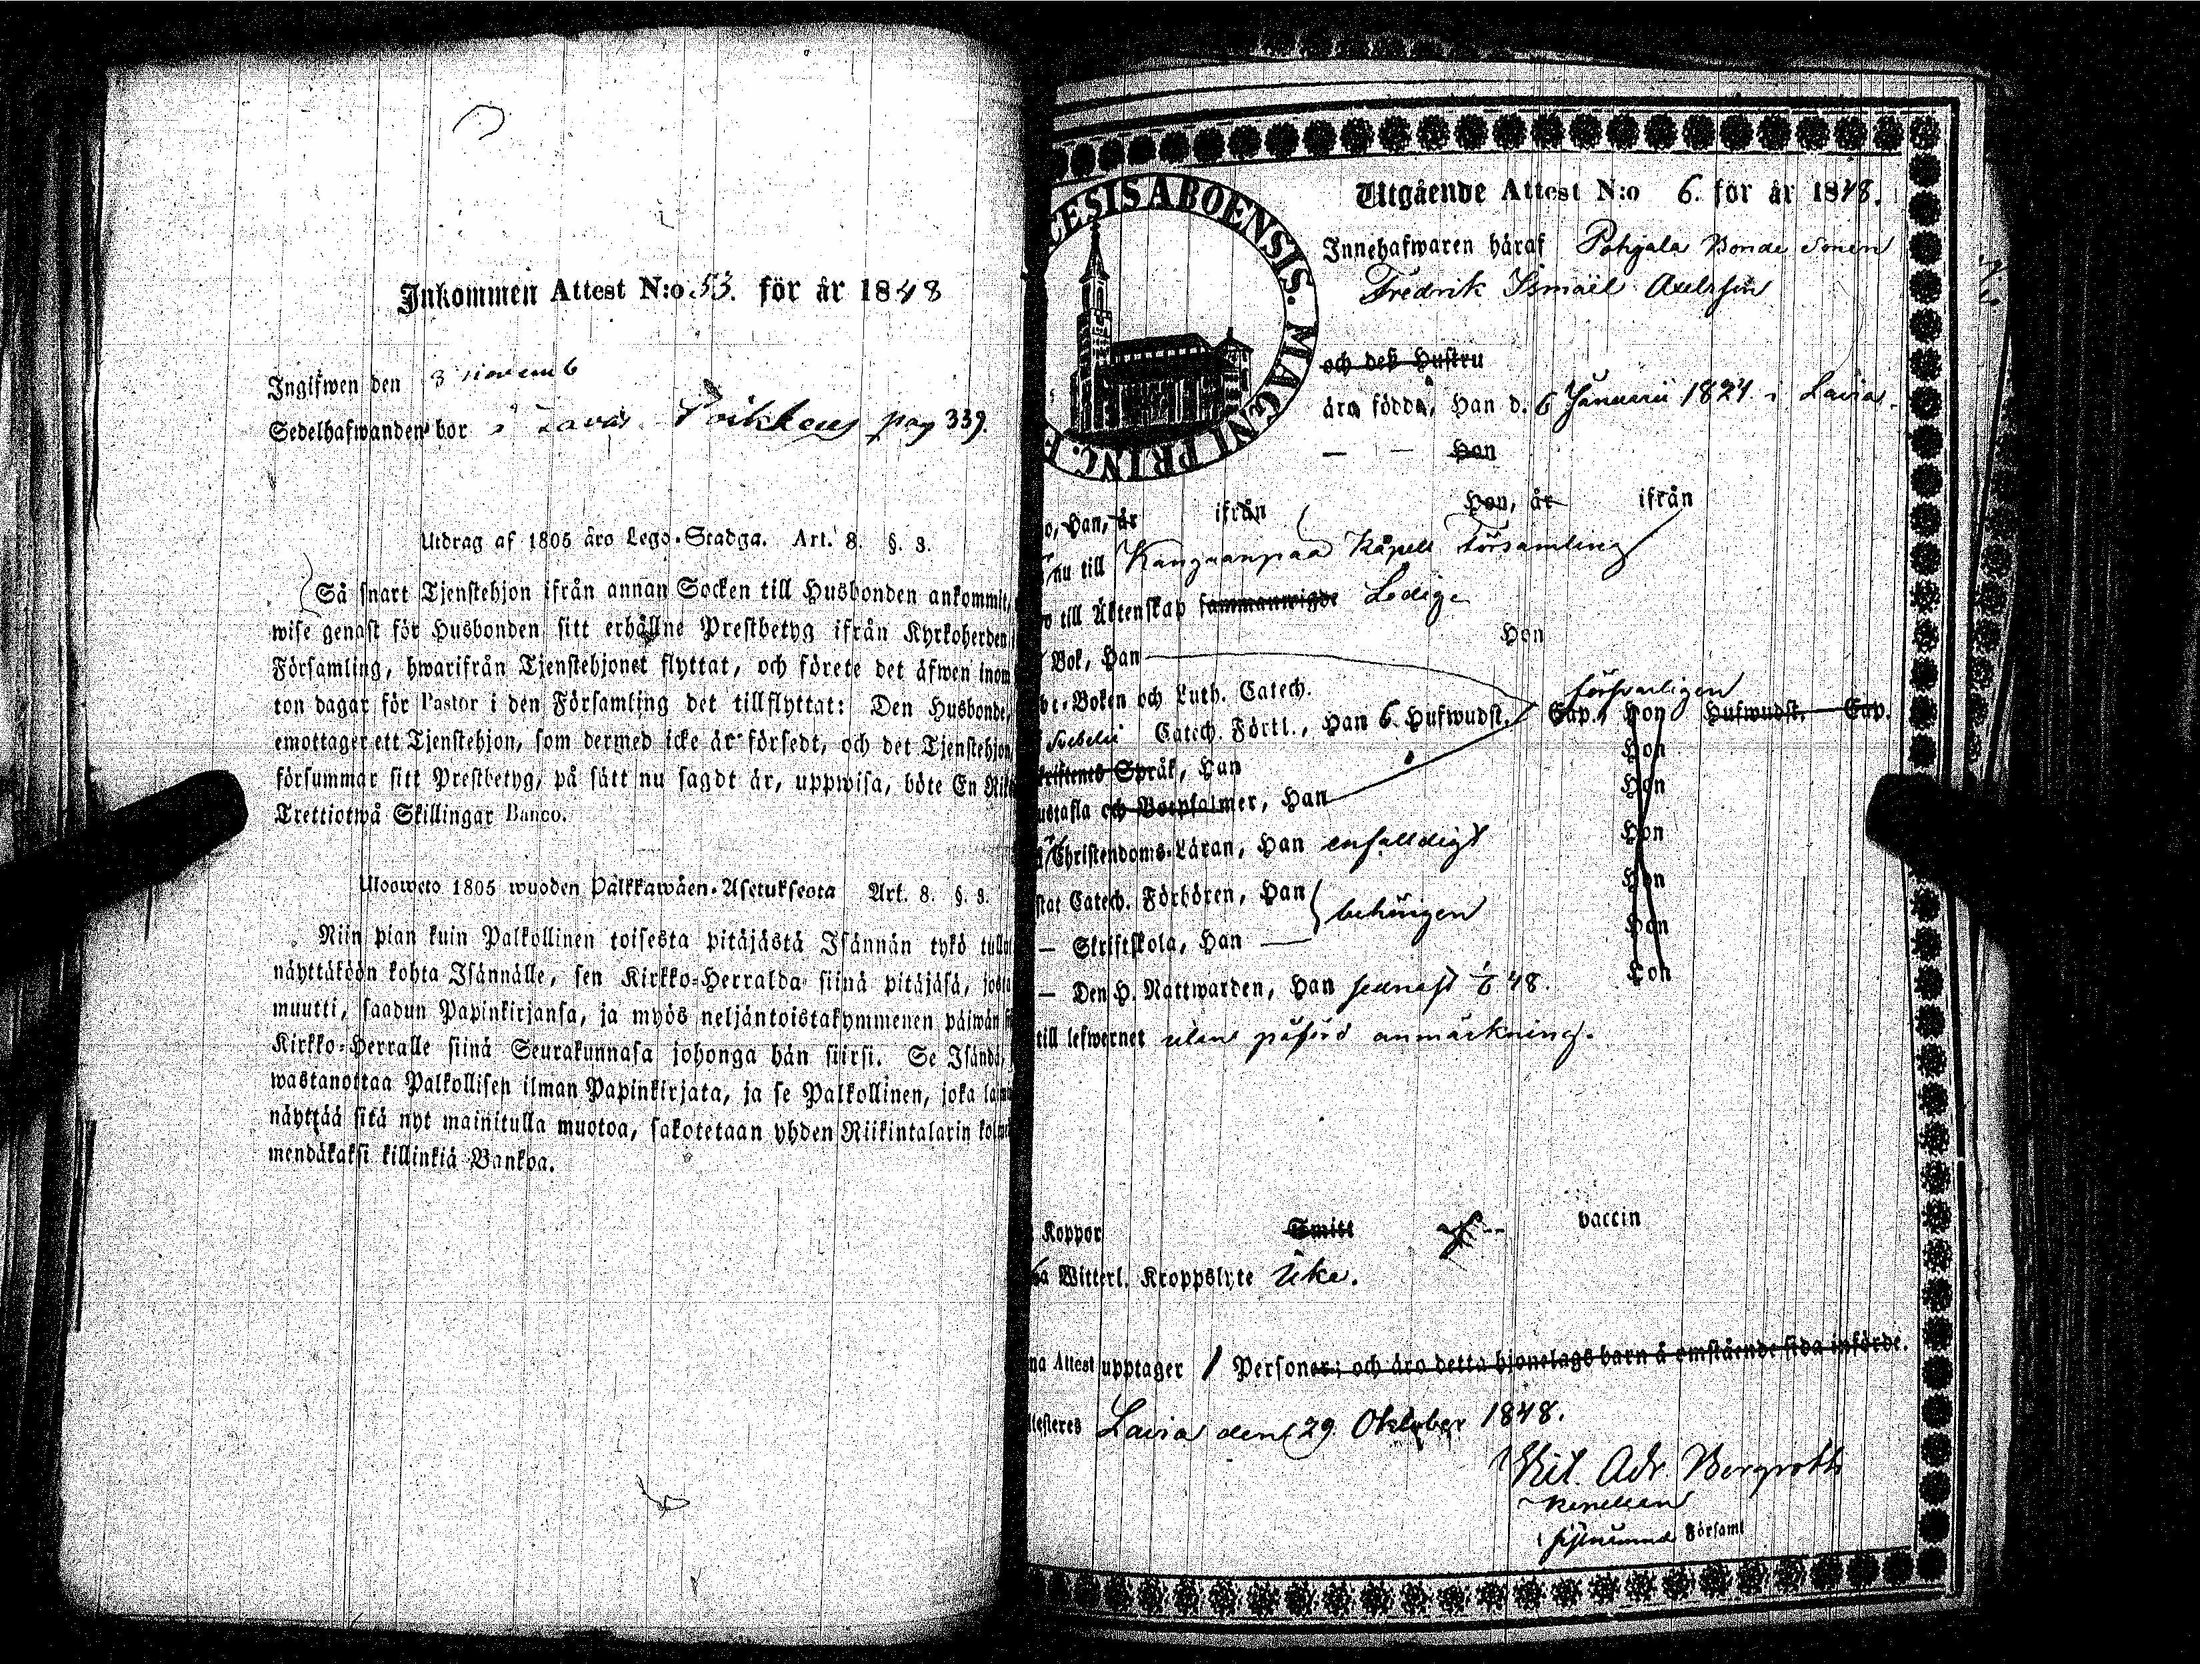 Inkommen Attest N:o 53. för år 1848
Ingifwen den 3 novemb
Sedelhafwanden bor i pag 339.
Utdrag af 1805 års Lego-Stadga. Art. 8. §. 3.
Så snart Tjenstehjon ifrån annan Socken till Husbonden ankommit,
wise genast för Husbonden sitt erhållne Prestbetyg ifrån Kyrkoherden
Församling, hwarifrån Tjenstehjonet flyttat, och förete det äfwen inom
ton dagar för Pastor i den Församling det tillflyttat: Den Husbonde,
emottager ett Tjenstehjon, som dermed icke är försedt, och det Tjenstehjon
försummar sitt Prestbetyg, på sätt nu sagdt är, uppwisa, böte En Rik
Trettiotwå Skillingar Banco.
Ulosweto 1805 wuoden Palkkawäen-Asetuksesta Art. 8. §. 3.
Niin pian kuin Palkollinen toisesta pitäjästä Isännän tykö tullut
näyttäköön kohta Isännälle, sen Kirkko-Herralda siinä pitäjäsä, josta
muutti, saadun Papinkirjansa, ja myös neljäntoistakymmenen päiwän
Kirkko-Herralle siinä Seurakunnasa johonga hän siirsi. Se Isändä,
wastanottaa Palkollisen ilman Papinkirjata, ja se Palkollinen, joka
näyttää sitä nyt mainitulla muotoa, sakotetaan yhden Riikintalarin kolme
mendäkaksi killinkiä Bankoa.
CESIS ABOENSIS. MAGNI PRINC. F
Utgående Attest N:o 6. för år 1848.
Innehafwaren häraf Pohjala Bonde Sonen
Fredrik Ismaël Axelsson
och deß Hustru
äro födde, Han d. 6 Januarii 1824 i Lavia.
— — Hon
o, Han, år ifrån Hon, år ifrån
nu till Kangaanpää Kapell Församling
till Äktenskap sammanwigde Ledig
Bok, Han Hon
bc-Boken och Luth. Catech. försvarligen
Svebelii Catech. Förkl., Han 6. Hufwudst. Cap., Hon Hufwudst. Cap.
kriftenes Språk, Han Hon
ustafla och Botpsalmer, Han Hon
Christendoms-Läran, Han enfalldigt Hon
stat Catech. Förhören, Han behörigen Hon
— Skriftskola, Han Hon
— Den H. Nattwarden, Han senast 1/6 48. Hon
till lefwernet utan påförd anmärkning.
Koppor Smitt vaccin
Witterl. Kroppslyte Icke.
na Attest upptager 1 Personer; och äro detta hjonelags barn å omstående sida införde.
testeres Lavia den 29 Oktober 1848.
Vil. Adr. Bergroth
Församl